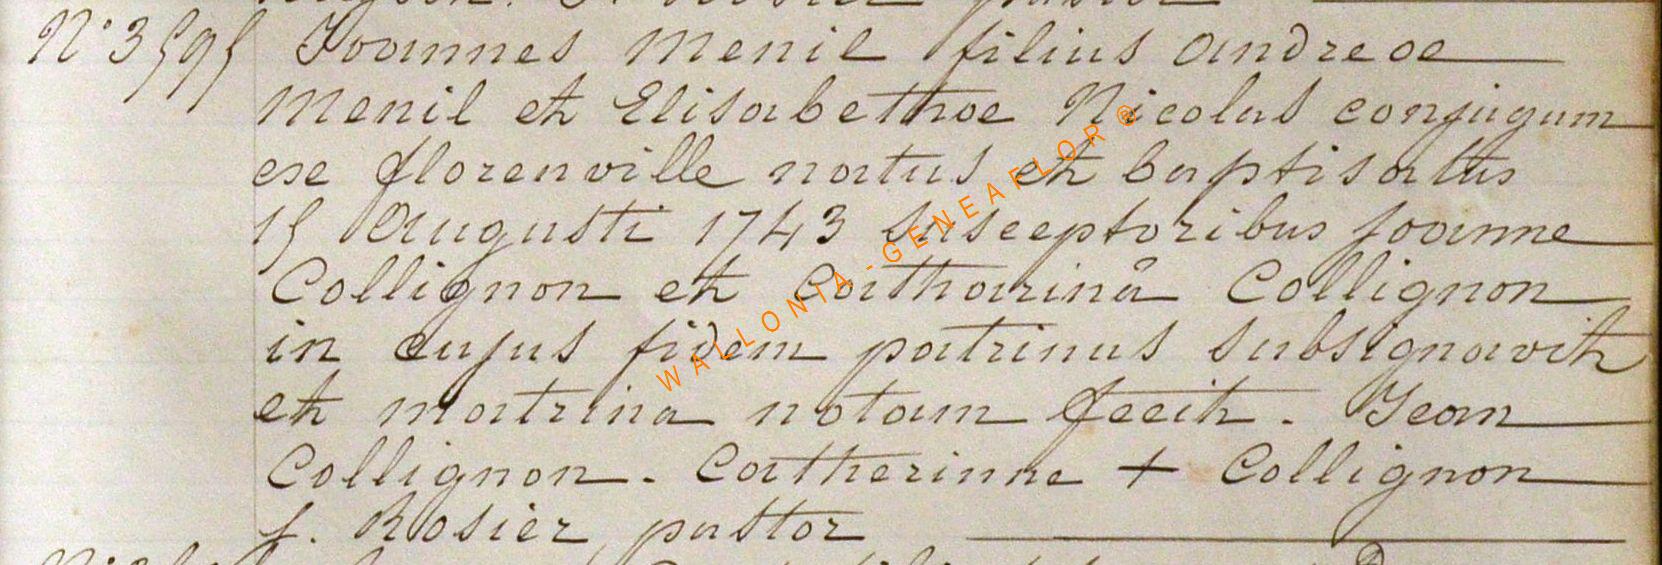 N° 3595 Joannes Menil filius Andreae
Menil et Elisabethae Nicolas conjugum
ex florenville natus et baptisatus
15 Augusti 1743 susceptoribus joanne
Collignon et Catharinâ Collignon
in cujus fidem patrinus subsignavit
et matrina notam fecit. Jean
Collignon. Catherinne + Collignon
J. Rosier pastor
WALLONIA-GENEAFLOR ®